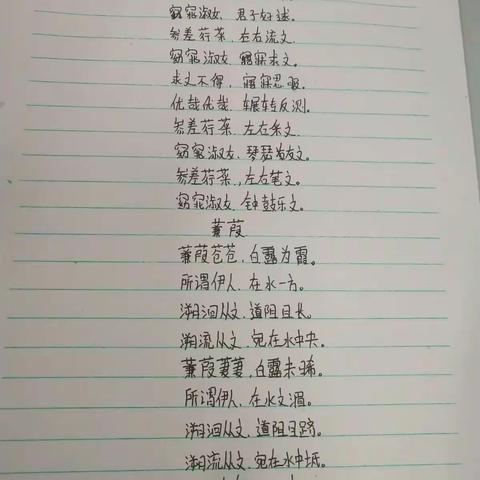 窈窕淑女，君子好逑。
参差荇菜，左右流文。
窈窕淑女，寤寐求文。
求文不得，寤寐思服。
优哉优哉，辗转反测。
参差荇菜，左右采文。
窈窕淑女，琴瑟友文。
参差荇菜，左右芼文。
窈窕淑女，钟鼓乐文。
蒹葭
蒹葭苍苍，白露为霜。
所谓伊人，在水一方。
溯洄从文，道阻且长。
溯流从文，宛在水中央。
蒹葭萋萋，白露未晞。
所谓伊人，在水文湄。
溯洄从文，道阻且跻。
溯流从文，宛在水中坻。